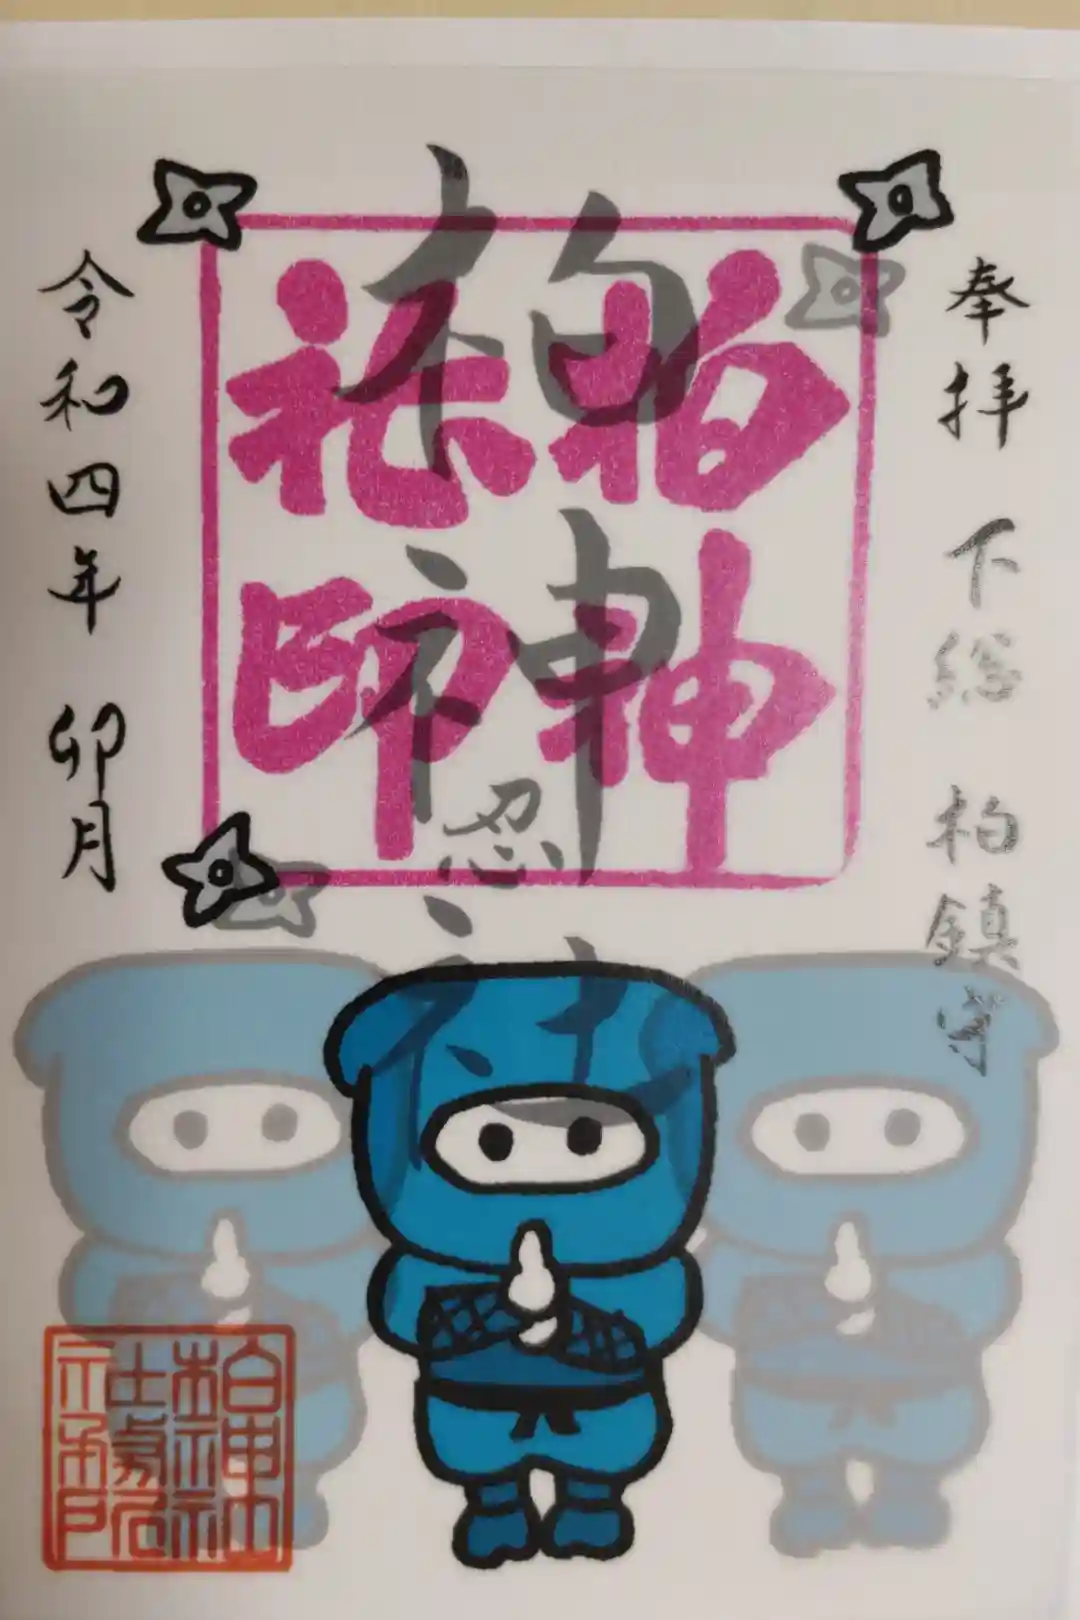 奉拝 下総 柏鎮守
柏神
社印
柏神社
忍
令和四年 卯月
柏神社
社務所